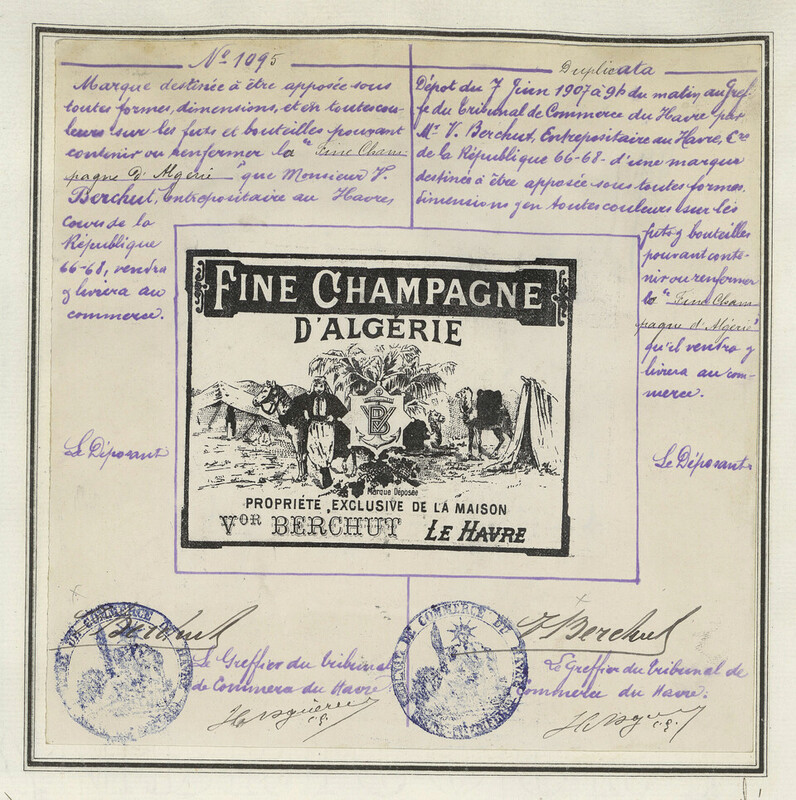 No 1095
Marque destinée à être apposée sous
toutes formes, dimensions, et en toutes cou-
leurs sur les futs et bouteilles pouvant
contenir ou renfermer la "Fine Cham
pagne D'Algérie" que Monsieur V.
Berchut, Entrepositaire au Havre
Cours de la
République
66-68, vendra
& livrera au
commerce.
Le Déposant
Duplicata
Dépôt du 7 Juin 1907 à 9h du matin au Gref-
fe du Tribunal de Commerce du Havre par
Mr V. Berchut, Entrepositaire au Havre, Crs
de la République 66-68 - d'une marque
destinée à être apposée sous toutes formes,
dimensions & en toutes couleurs sur les
futs & bouteilles
pouvant conte-
nir ou renfermer
la "Fine Cham
pagne d'Algérie"
qu'il vendra &
livrera au com-
merce.
Le Déposant
FINE CHAMPAGNE
D'ALGÉRIE
VB
Marque Déposée
PROPRIÉTÉ EXCLUSIVE DE LA MAISON
VOR BERCHUT LE HAVRE
V Berchut
Le Greffier du Tribunal
de Commerce du Havre
V Berchut
Le Greffier du Tribunal de
Commerce du Havre.
TRIBUNAL DE COMMERCE DU HAVRE